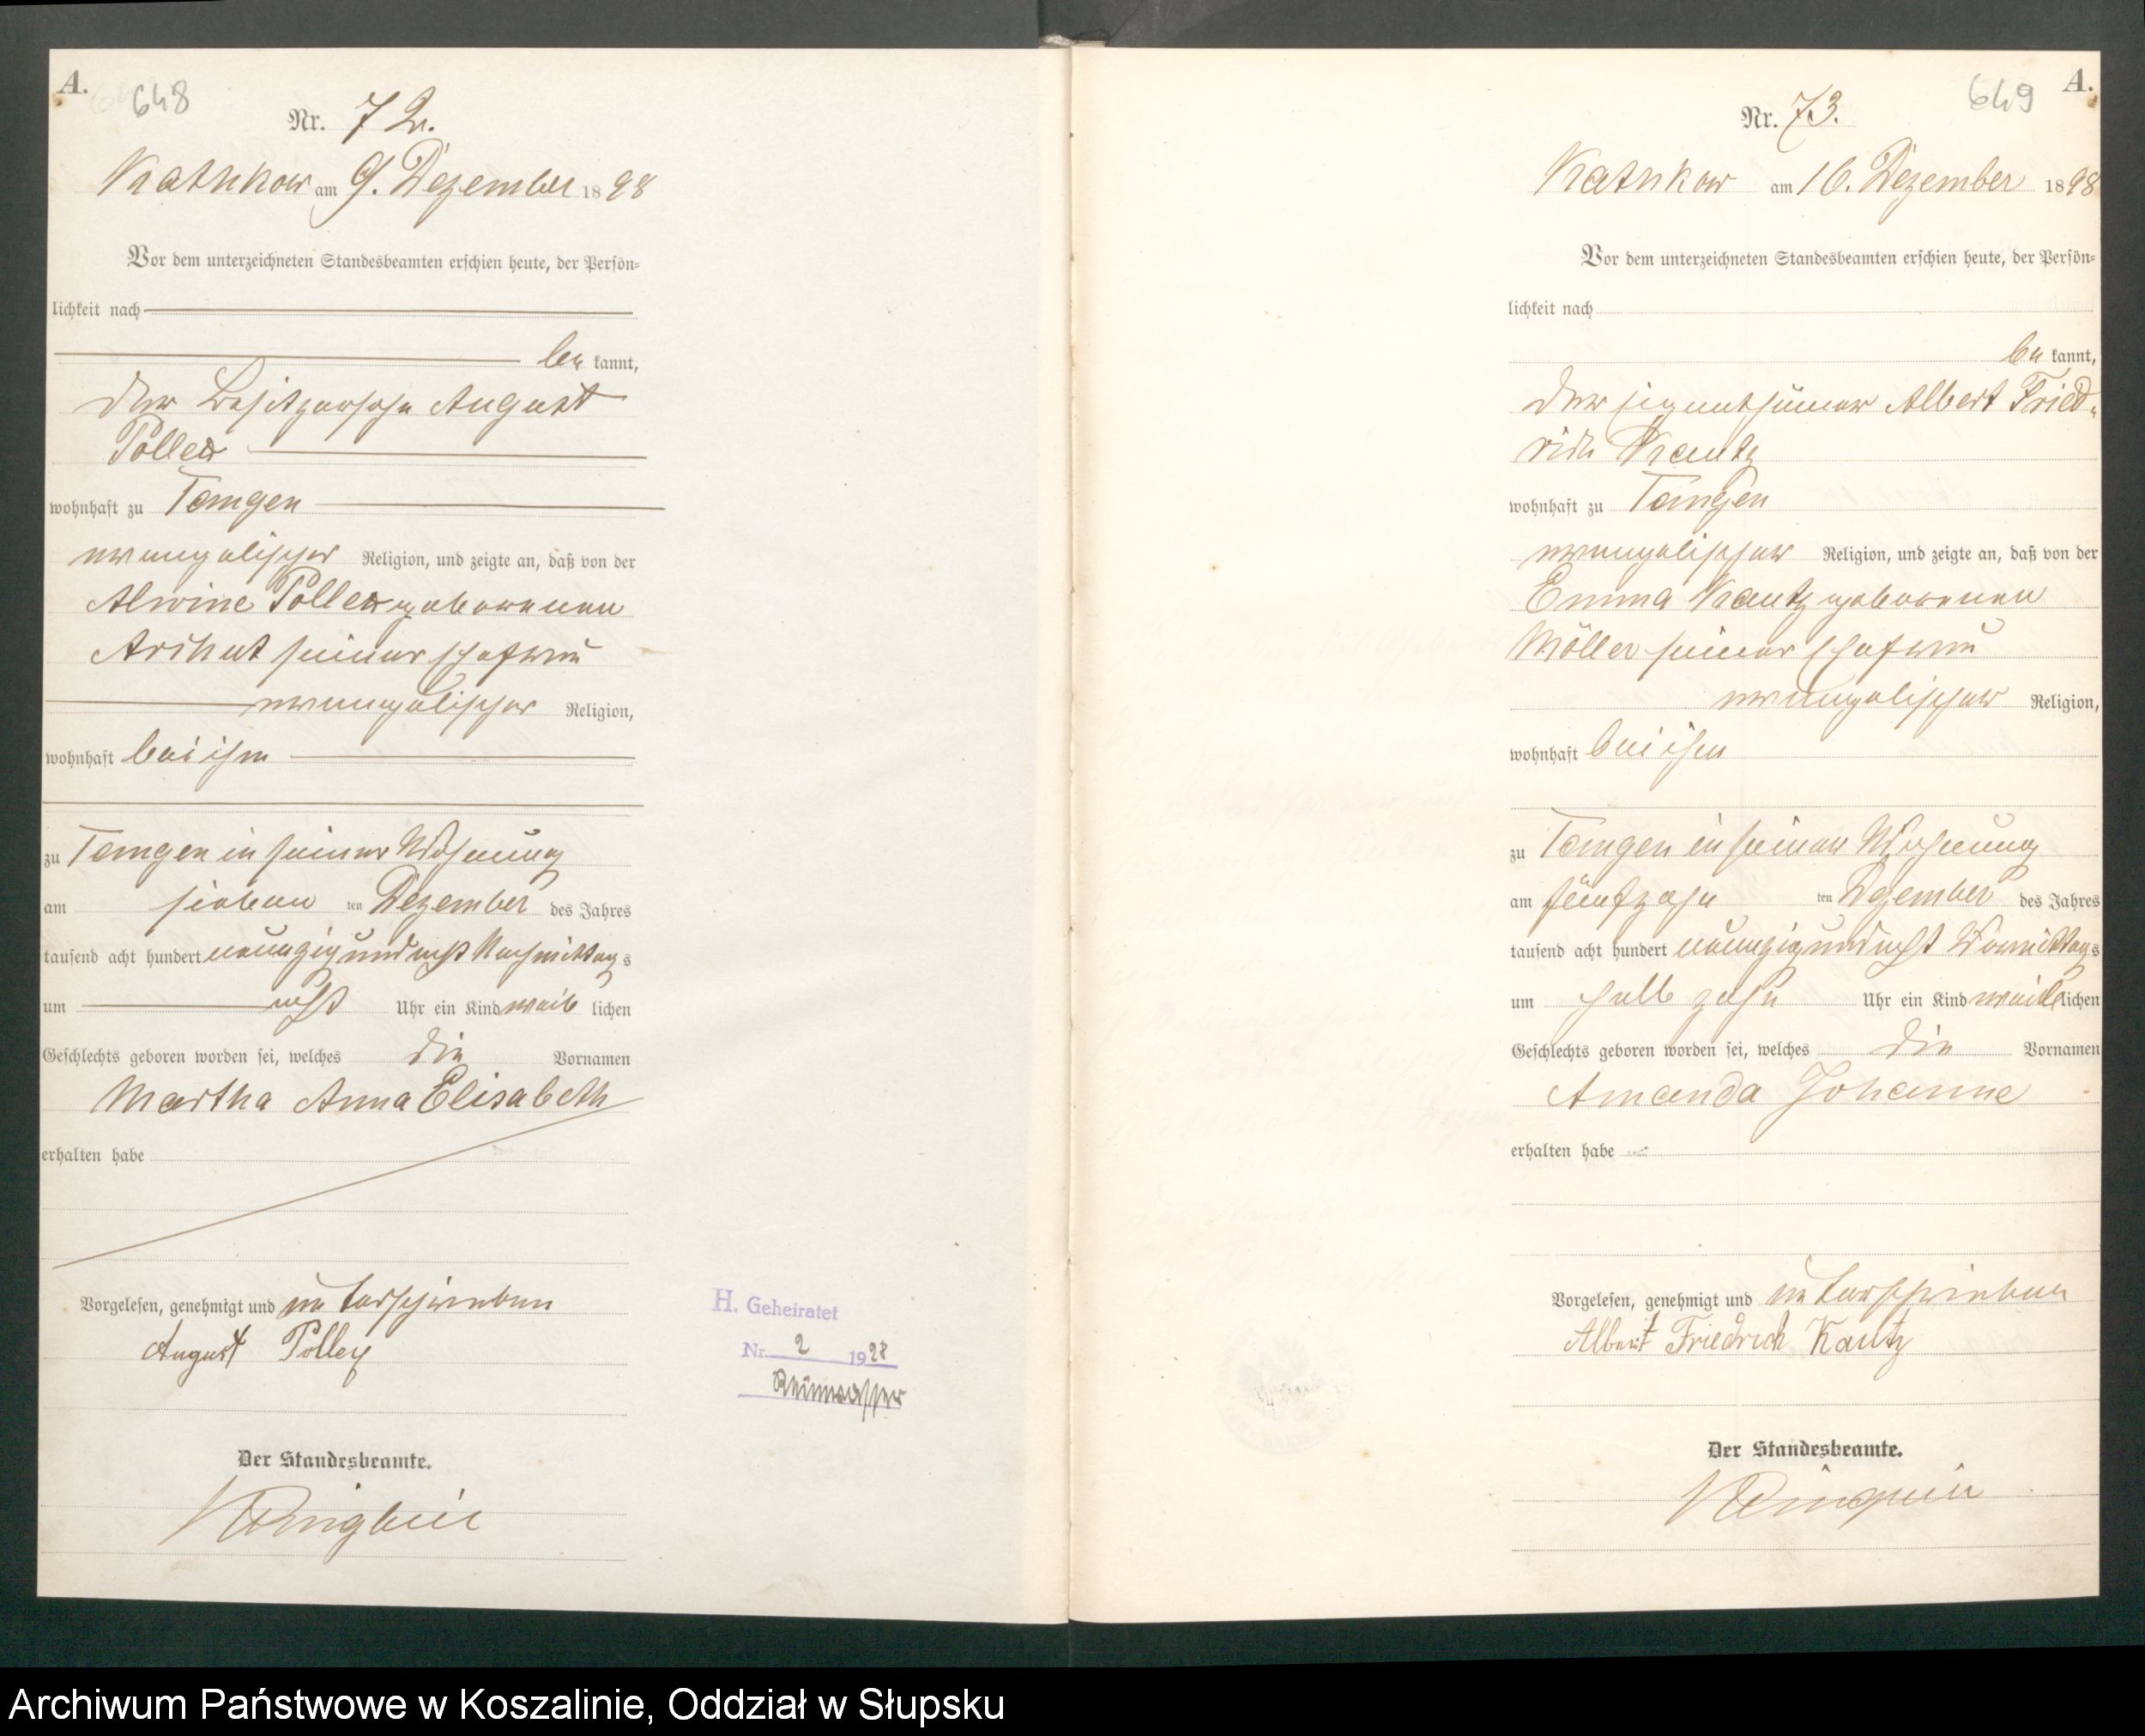 A.
648
Nr. 72.
Kathkow am 9. Dezember 1898
Vor dem unterzeichneten Standesbeamten erschien heute, der Persön=
lichkeit nach
be kannt,
der Besitzersohn August
Polley
wohnhaft zu Tangen
evangelischer Religion, und zeigte an, daß von der
Alwine Polley geborenen
seiner Ehefrau
evangelischer Religion,
wohnhaft bei ihm
zu Tangen in seiner Wohnung
am sieben ten Dezember des Jahres
tausend acht hundert neunzig und acht Nachmittags
um acht Uhr ein Kind weib lichen
Geschlechts geboren worden sei, welches die Vornamen
Martha Anna Elisabeth
erhalten habe
Vorgelesen, genehmigt und unterschrieben
August Polley
Der Standesbeamte.
H. Geheiratet
Nr. 2 1928
Reinwasser
649
A.
Nr. 73.
Kathkow am 16. Dezember 1898
Vor dem unterzeichneten Standesbeamten erschien heute, der Persön=
lichkeit nach
be kannt,
der Eigenthümer Albert Fried-
rich Kautz
wohnhaft zu Tangen
evangelischer Religion, und zeigte an, daß von der
Emma Kautz geborenen
Möller seiner Ehefrau
evangelischer Religion,
wohnhaft bei ihm
zu Tangen in seiner Wohnung
am fünfzehn ten Dezember des Jahres
tausend acht hundert neunzig und acht Vormittags
um halb zehn Uhr ein Kind weiblichen
Geschlechts geboren worden sei, welches die Vornamen
Amanda Johanne
erhalten habe
Vorgelesen, genehmigt und unterschrieben
Albert Friedrich Kautz
Der Standesbeamte.
Archiwum Państwowe w Koszalinie, Oddział w Słupsku